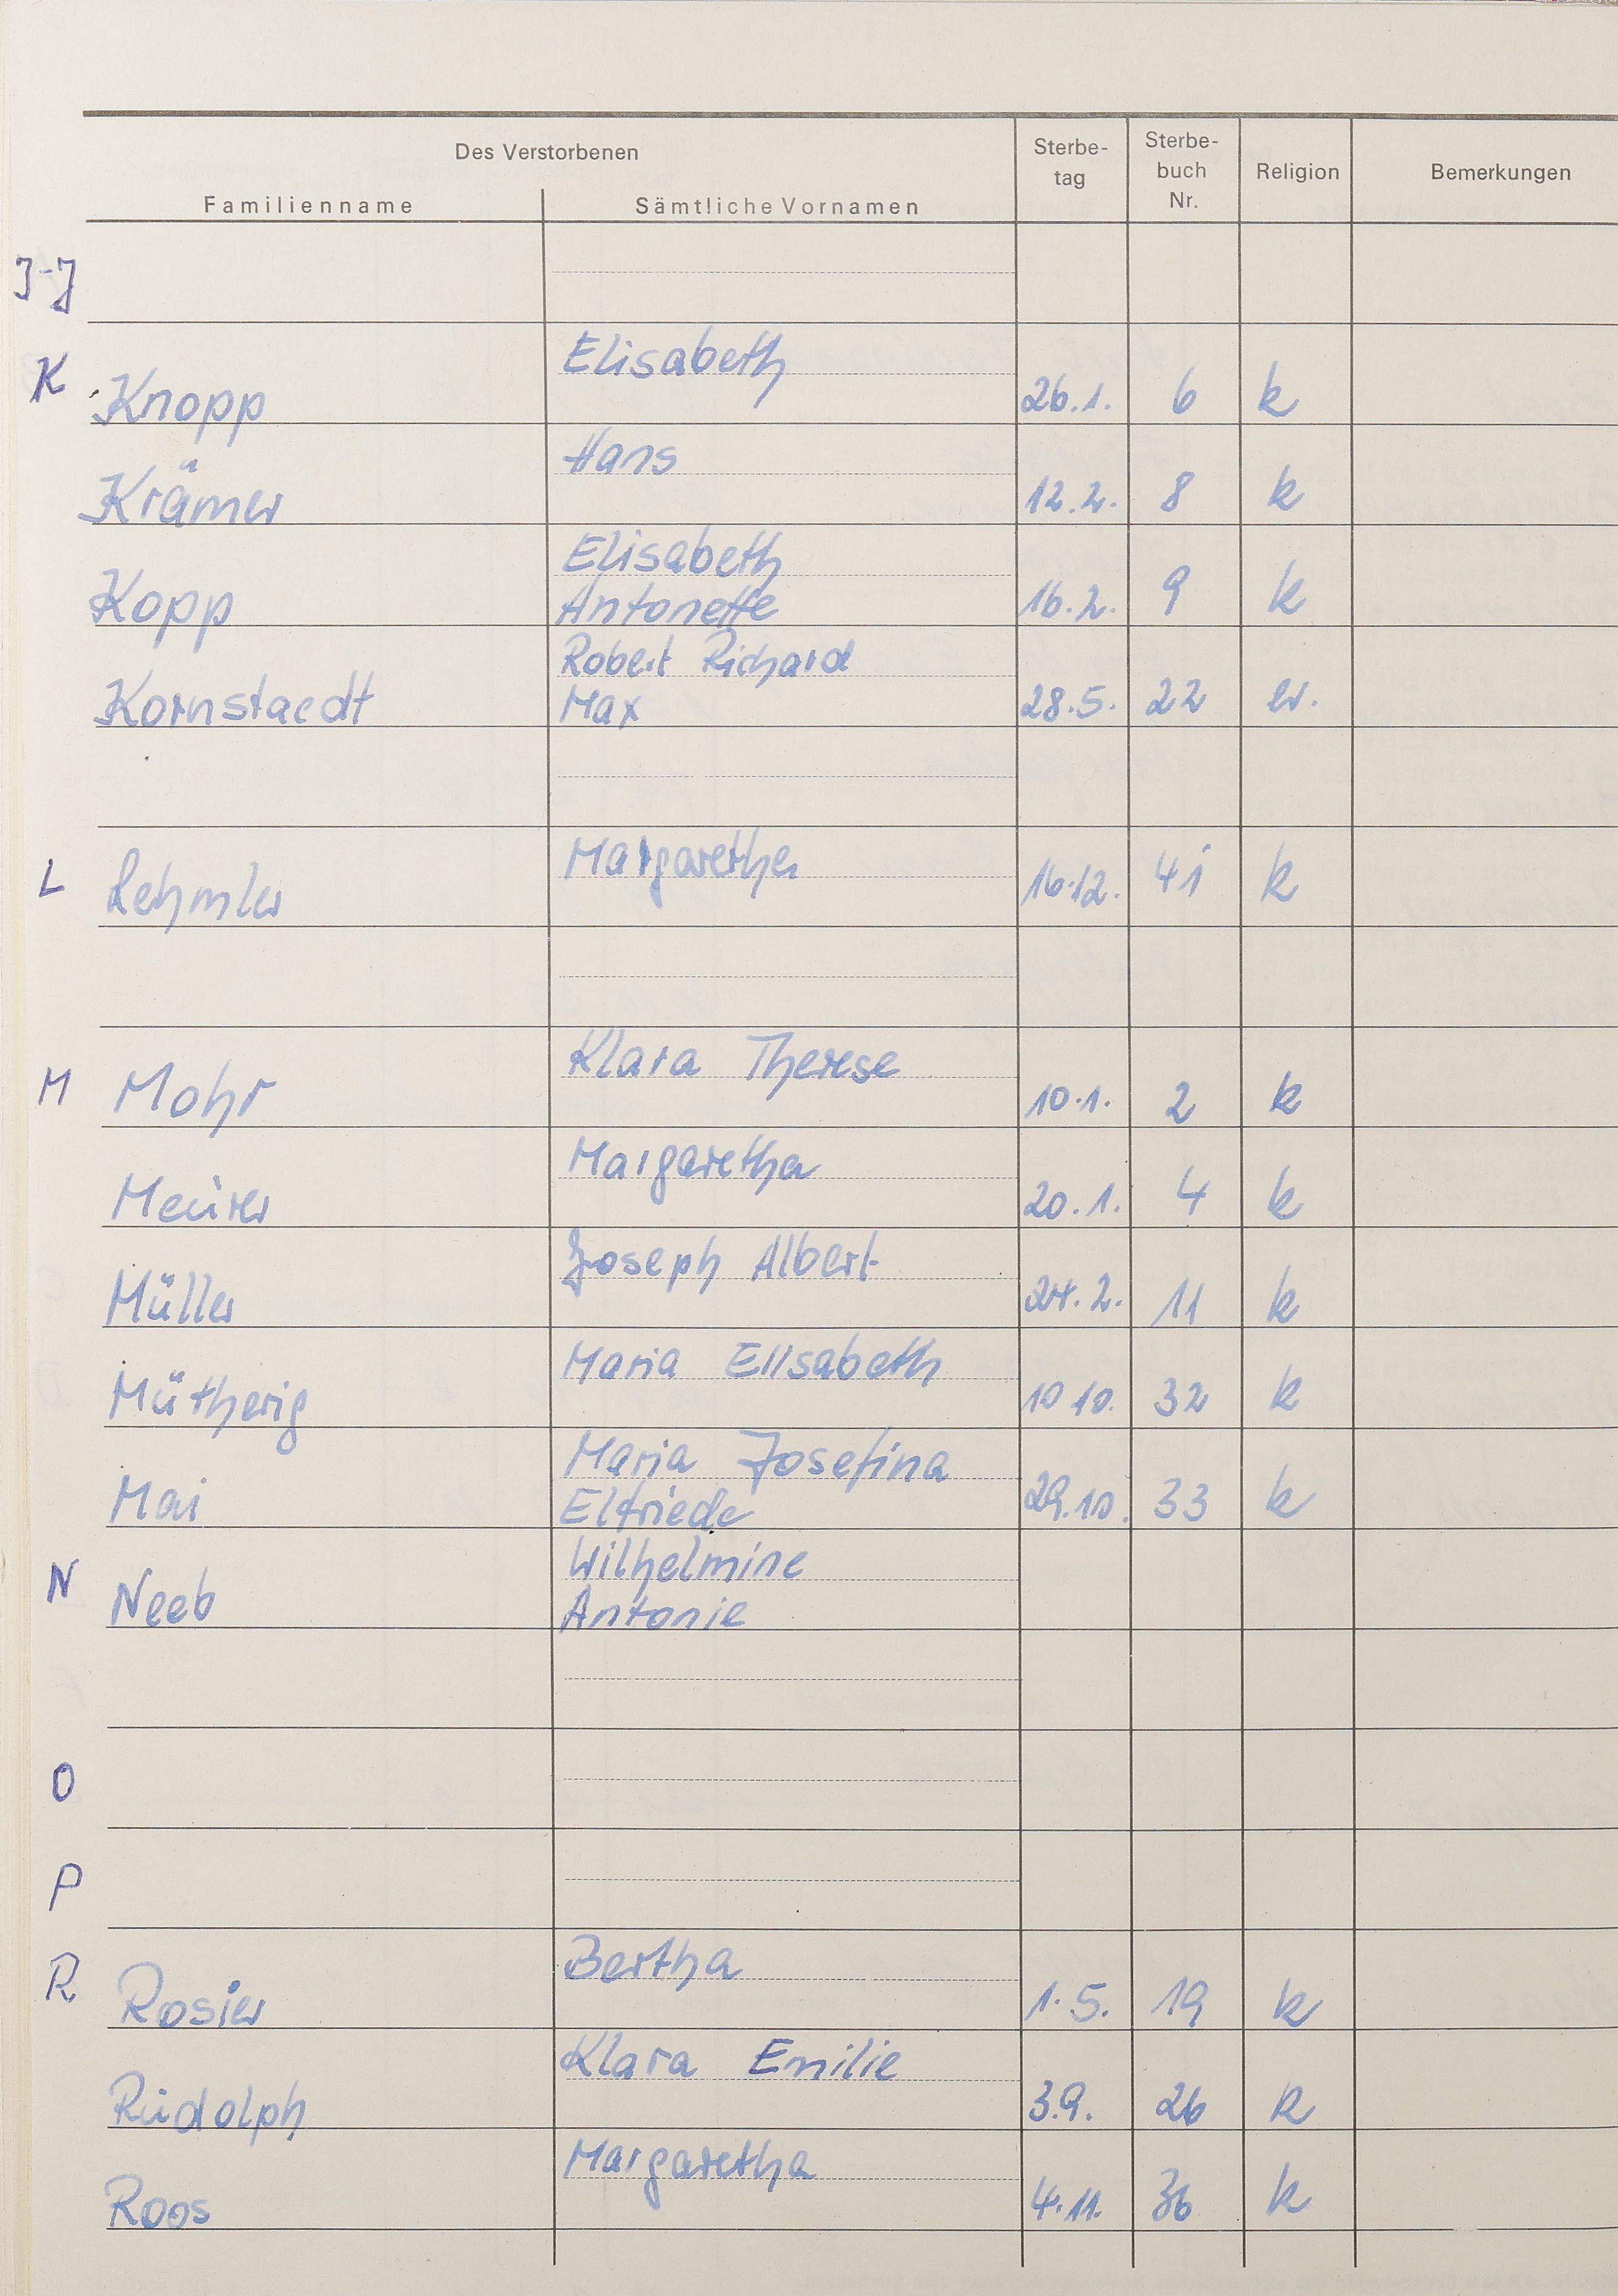 Des Verstorbenen
Familienname Sämtliche Vornamen Sterbe-
tag Sterbe-
buch
Nr. Religion Bemerkungen
I-J
Elisabeth
K Knopp 26.1. 6 k
Hans
Krämer 12.2. 8 k
Elisabeth
Kopp Antonette 16.2. 9 k
Robert Richard
Kornstaedt Max 28.5. 22 ev.
Margarethe
L Lehmler 16.12. 41 k
Klara Therese
M Mohr 10.1. 2 k
Margaretha
Meurer 20.1. 4 k
Joseph Albert
Müller 24.2. 11 k
Maria Elisabeth
Mütherig 10 10. 32 k
Maria Josefina
Mai Elfriede 29.10. 33 k
Wilhelmine
N Neeb Antonie
O
P
Bertha
R Rosier 1.5. 19 k
Klara Emilie
Rudolph 3.9. 26 k
Margaretha
Roos 4.11. 36 k